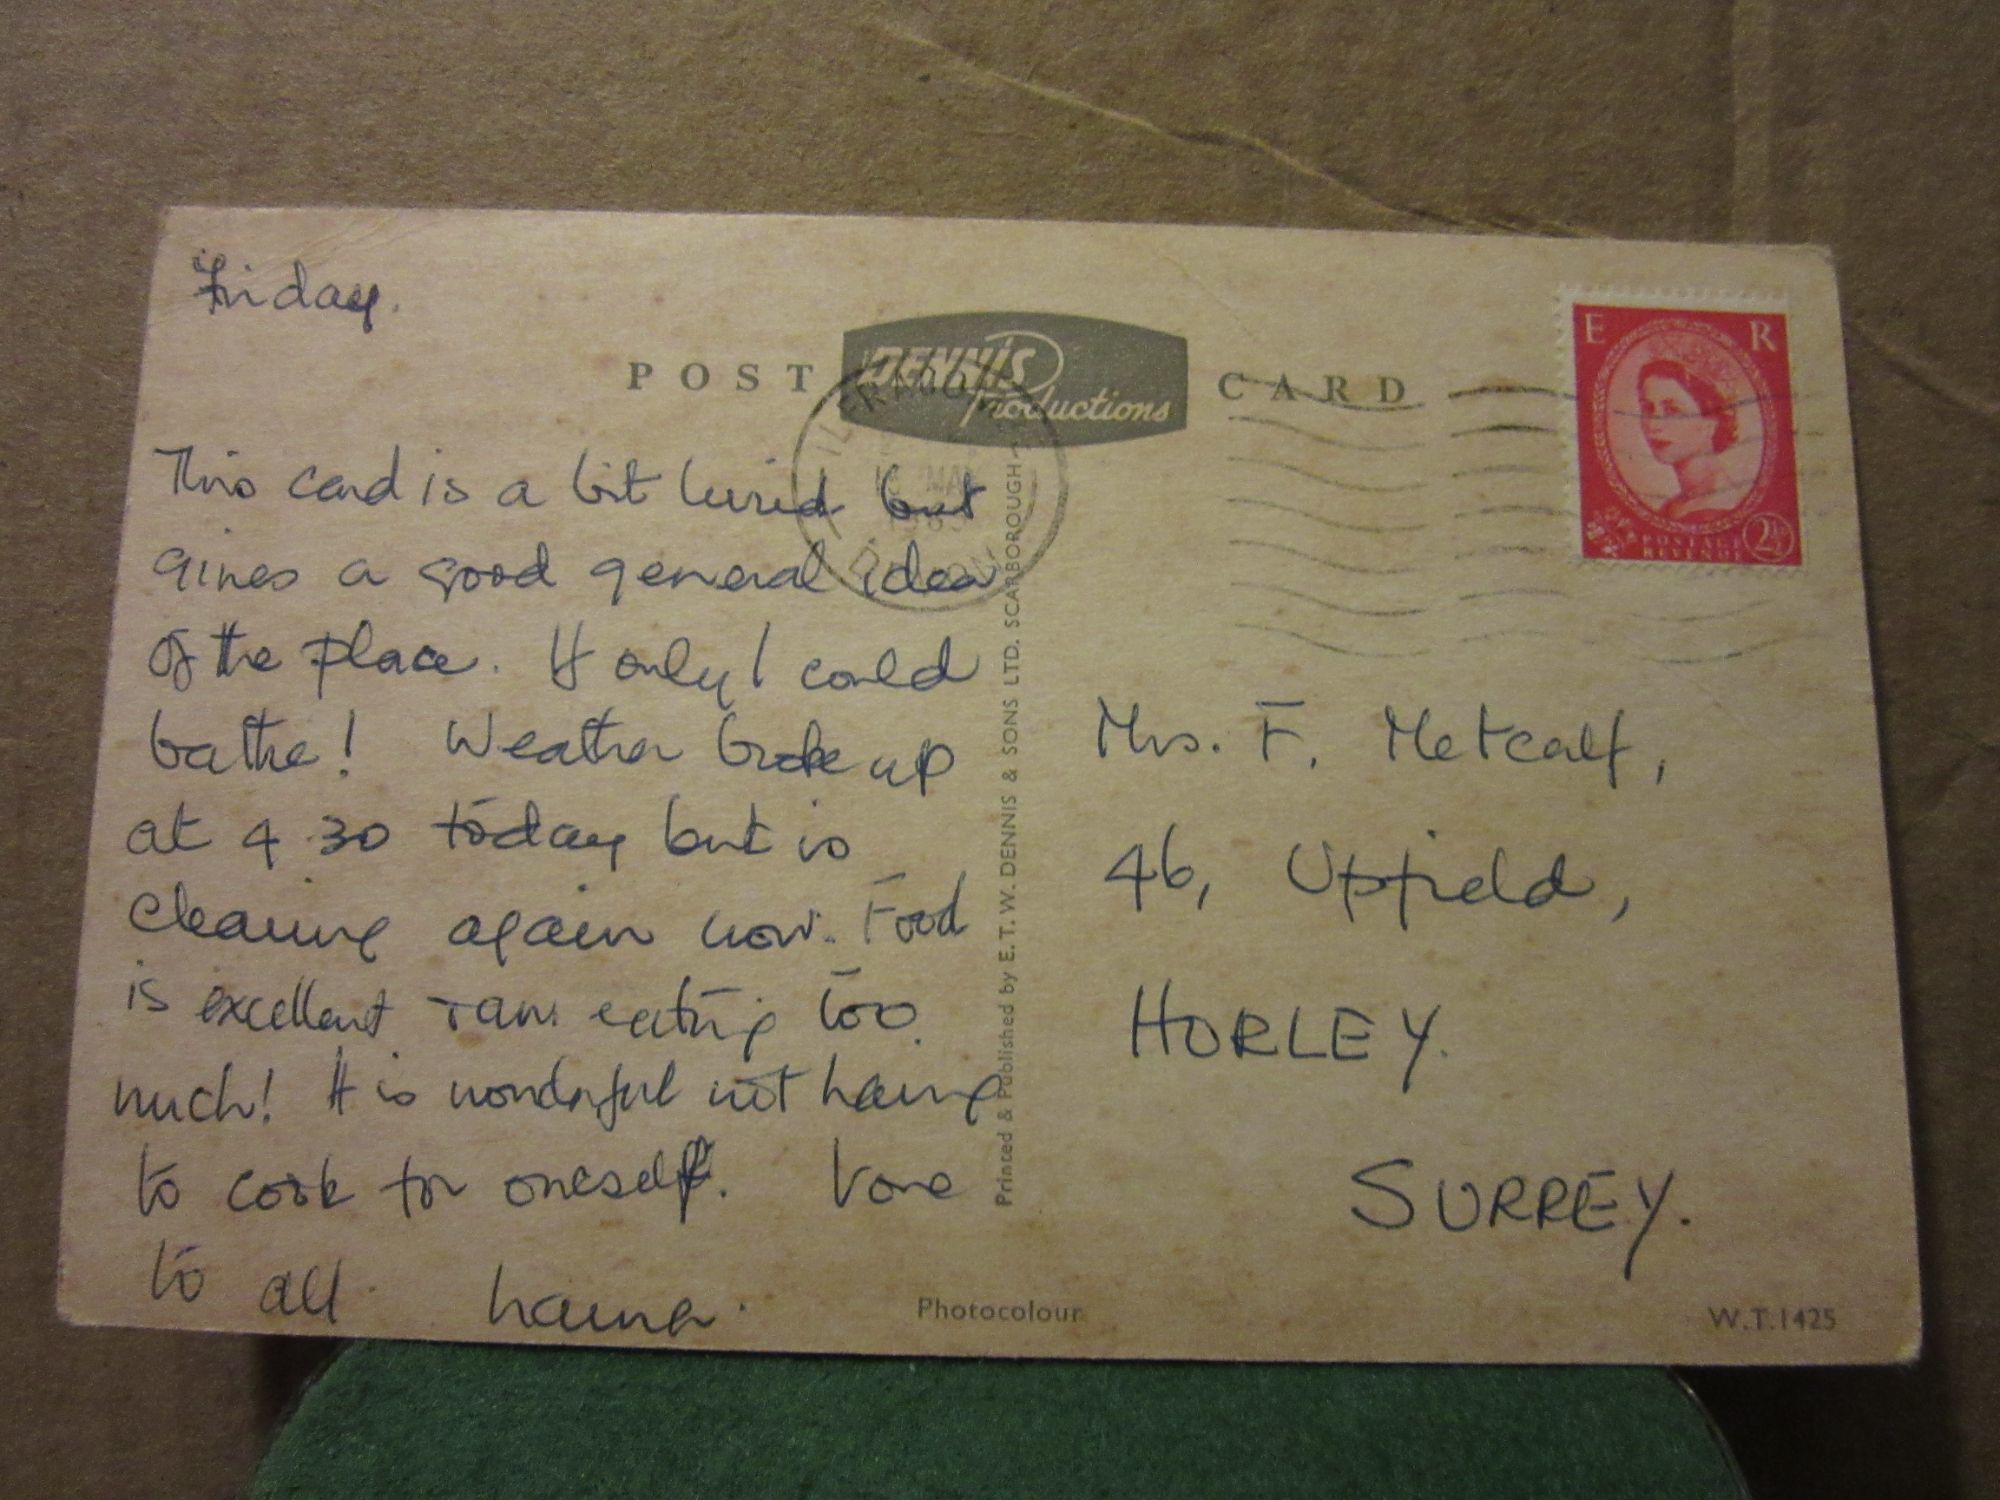 Friday.
POST CARD
DENNIS
Productions
ILFRACOMBE
MAY
DEVON
E R
POSTAGE
REVENUE
2½
This card is a bit lurid but
gives a good general idea
of the place. If only I could
bathe! Weather broke up
at 4 30 today but is
clearing again now. Food
is excellent & am eating too
much! It is wonderful not having
to cook for oneself. Love
to all.
Mrs. F. Metcalf,
46, Upfield,
HORLEY.
SURREY.
Printed & Published by E. T. W. DENNIS & SONS LTD. SCARBOROUGH
Photocolour
W.T.1425